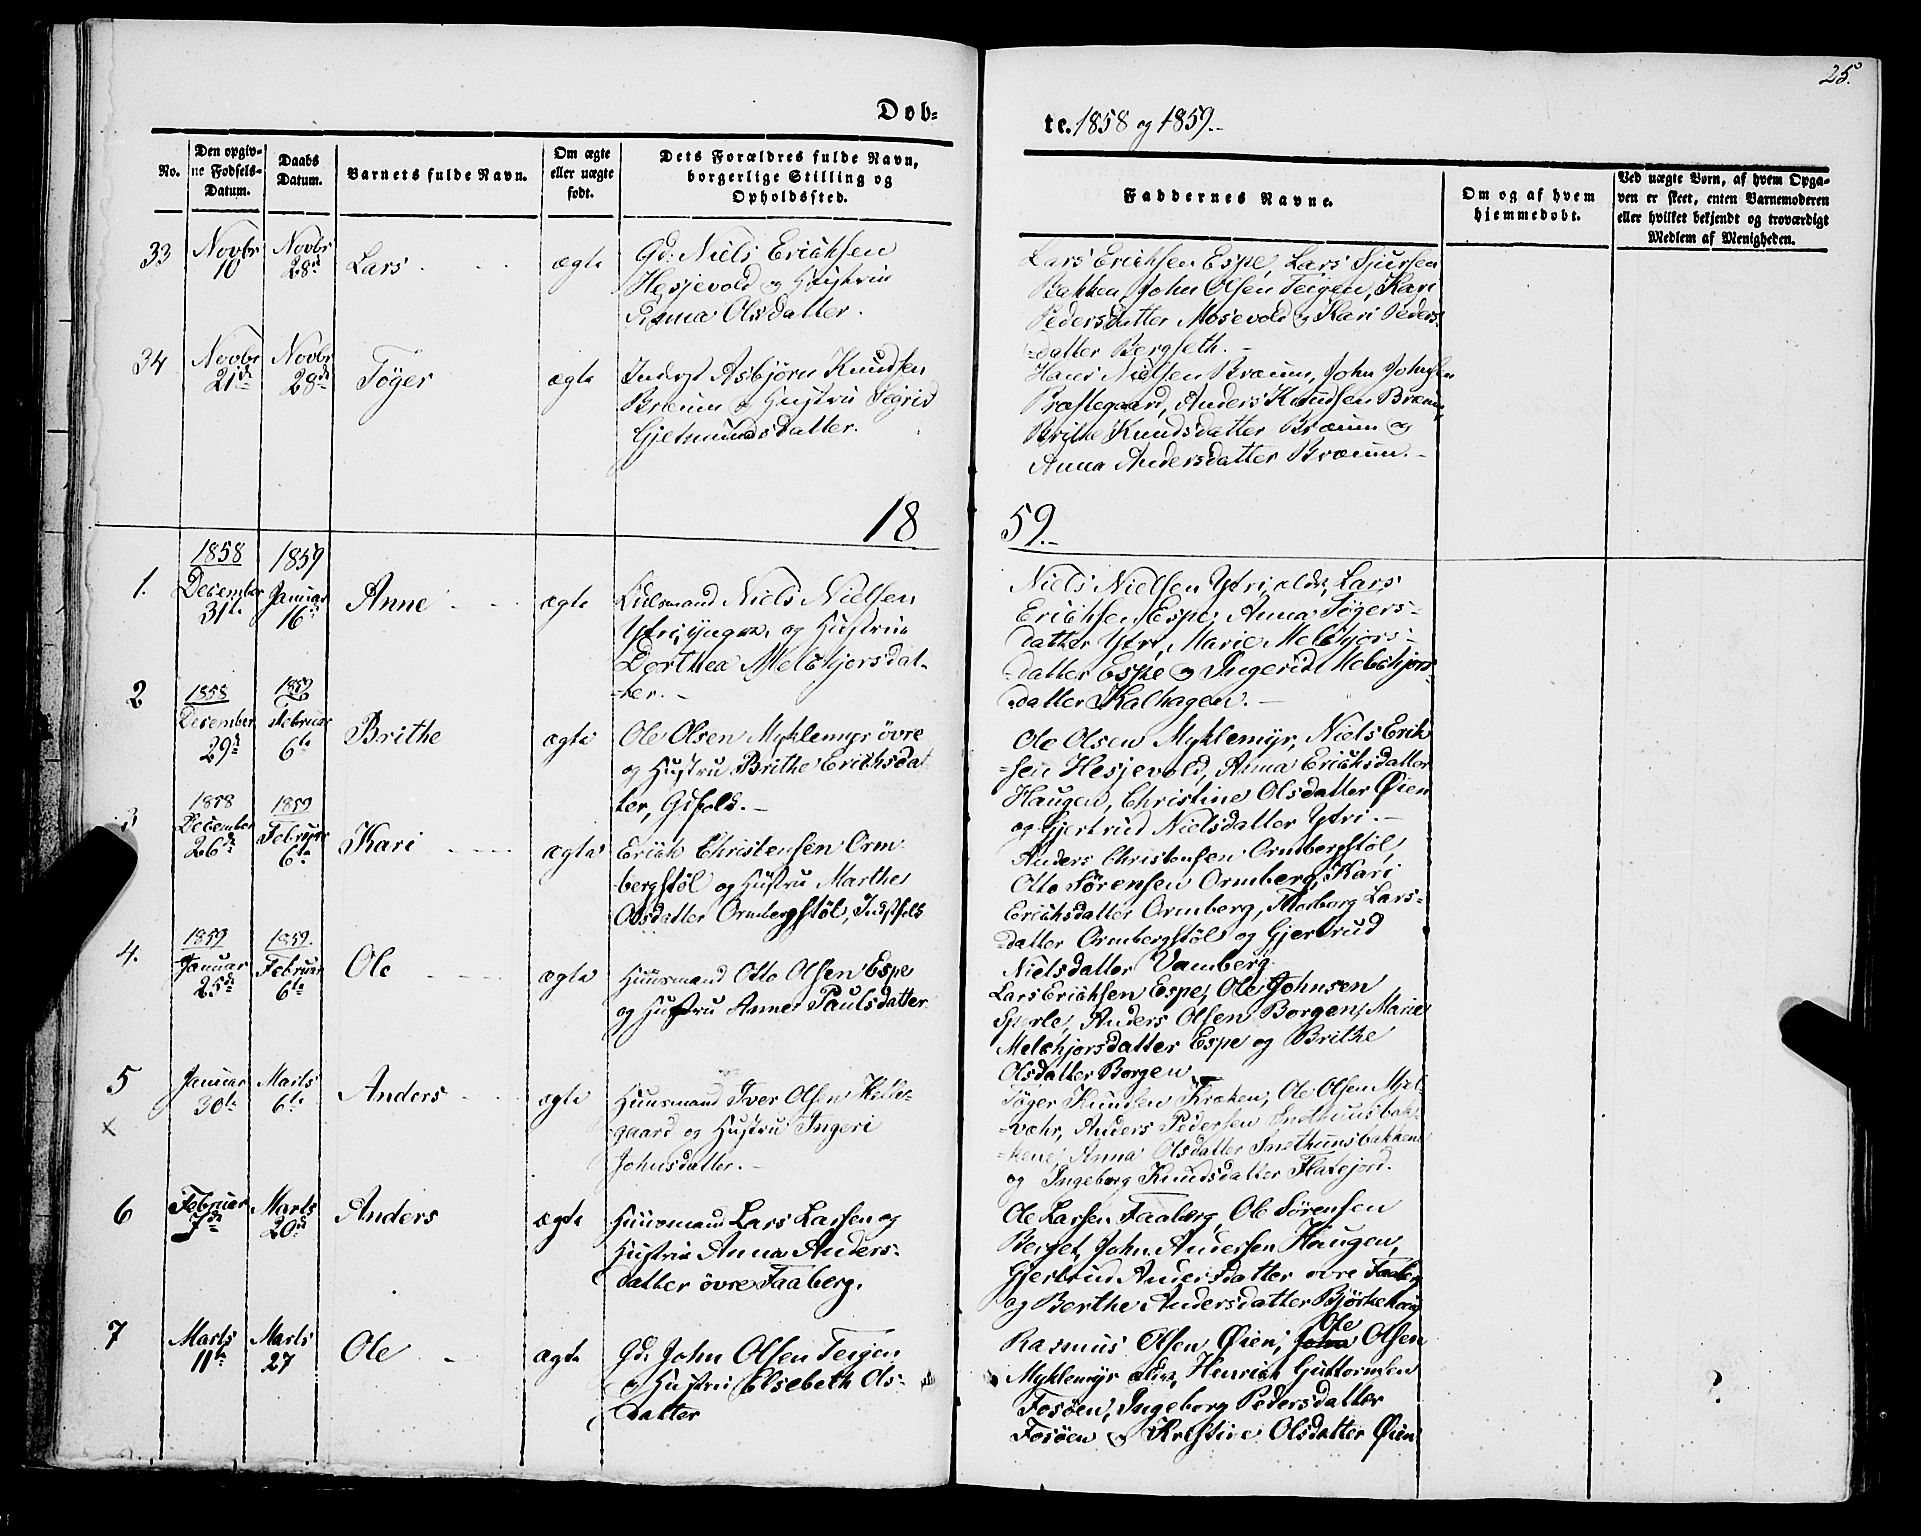 25.
Døb-
te. 1858 og 1859.-
No.
Den opgiv-
ne Fødsels-
Datum.
Daabs
Datum.
Barnets fulde Navn.
Om ægte
eller uægte
født.
Dets Forældres fulde Navn,
borgerlige Stilling og
Opholdssted.
Faddernes Navne.
Om og af hvem
hjemmedøbt.
Ved uægte Børn, af hvem Opga-
ven er skeet, enten Barnemoderen
eller hvilket bekjendt og troværdigt
Medlem af Menigheden.
33
Novbr
10
Novbr
28de
Lars
ægte
Gd. Niels Erichsen
Hesjevold og Hustrue
Anna Olsdatter.
Lars Erichsen Espe, Lars Sjursen
Bakken, John Olsen Teigen, Kari
Pedersdatter Mosevold og Kari Peders-
datter Bergseth.-
34
Novbr
21de
Novbr
28de
Töger
ægte
Inderst Asbjörn Knudsen
Bræum og Hustru Sigrid
Gjetmundsdatter.
Hans Nielsen Bræum, John Johnsen
Præstegaard, Anders Knudsen Bræum,
Brithe Knudsdatter Bræum og
Anna Andersdatter Bræum.-
18
59.-
1.
1858
December
31te
1859
Januar
16de
Anne
ægte
Niels Nielsen
Ytri, yngre, og Hustrue
Dorthea Melchjorsdat-
-ter.-
Niels Nielsen Ytri, ældr, Lars
Erichsen Espe, Anna Tögers-
datter Ytri, Marie Melchjors-
-datter Espe og Ingerid Melchjors-
datter Kalhagen.-
2
1858
December
29de
1859
Februar
6te
Brithe
ægte
Ole Olsen Myklemyr övre
og Hustru Brithe Erichsdat-
ter, Gifold.-
Ole Olsen Myklemyr, Niels Erik-
-sen Hesjevold, Anna Erichsdatter
Haugen, Christine Olsdatter Øien
og Gjertrud Nielsdatter Ytri.-
3
1858
December
26de
1859
Februar
6te
Kari
ægte
Erich Christensen Orm-
-bergstöl og Hustru Marthe
Olsdatter Ormbergstöl, Indstfolk
Anders Christensen Ormbergstöl,
Otto Sörensen Ormberg, Kari
Erichsdatter Ormberg, Thorborg Lars-
datter Ormbergstöl og Gjertrud
Nielsdatter Vamberg
4.
1859
Januar
25de
1859.
Februar
6te
Ole
ægte
Huusmand Otto Olsen Espe
og Hustru Anne Paulsdatter
Lars Erichsen Espe, Ole Johnsen
Sperle, Anders Olsen Borgen, Marie
Melchjorsdatter Espe og Brithe
Olsdatter Borgen
5
x
Januar
30te
Marts
6te
Anders
ægte
Huusmand Iver Olsen Kelle-
gaard og Hustru Ingeri
Johnsdatter.-
Töger Knudsen Kroken, Ole Olsen Mjel-
-væhr, Anders Pedersen Snethuusbak-
-kene, Anna Olsdatter Snethuusbakkene
og Ingeborg Knudsdatter Flatejord.
6
Februar
7de
Marts
20de
Anders
ægte
Huusmand Lars Larsen og
Hustrue Anna Anders-
datter övre Faaberg.
Ole Larsen Faaberg, Ole Sörensen
Berget, John Andersen Haugen,
Gjertrud Andersdatter övre Faaberg
og Berthe Andersdatter Björkehaug
7
Marts
11te
Marts
27
Ole
ægte
Gd. John Olsen Teigen
og Hustrue Elsebeth Ols-
datter
Ole
Rasmus Olsen Øien, John Olsen
Myklemyr ældre, Henrich Guttormsen
Fosöen, Ingeborg Pedersdatter
Fosöen og Kristine Olsdatter Øien
?